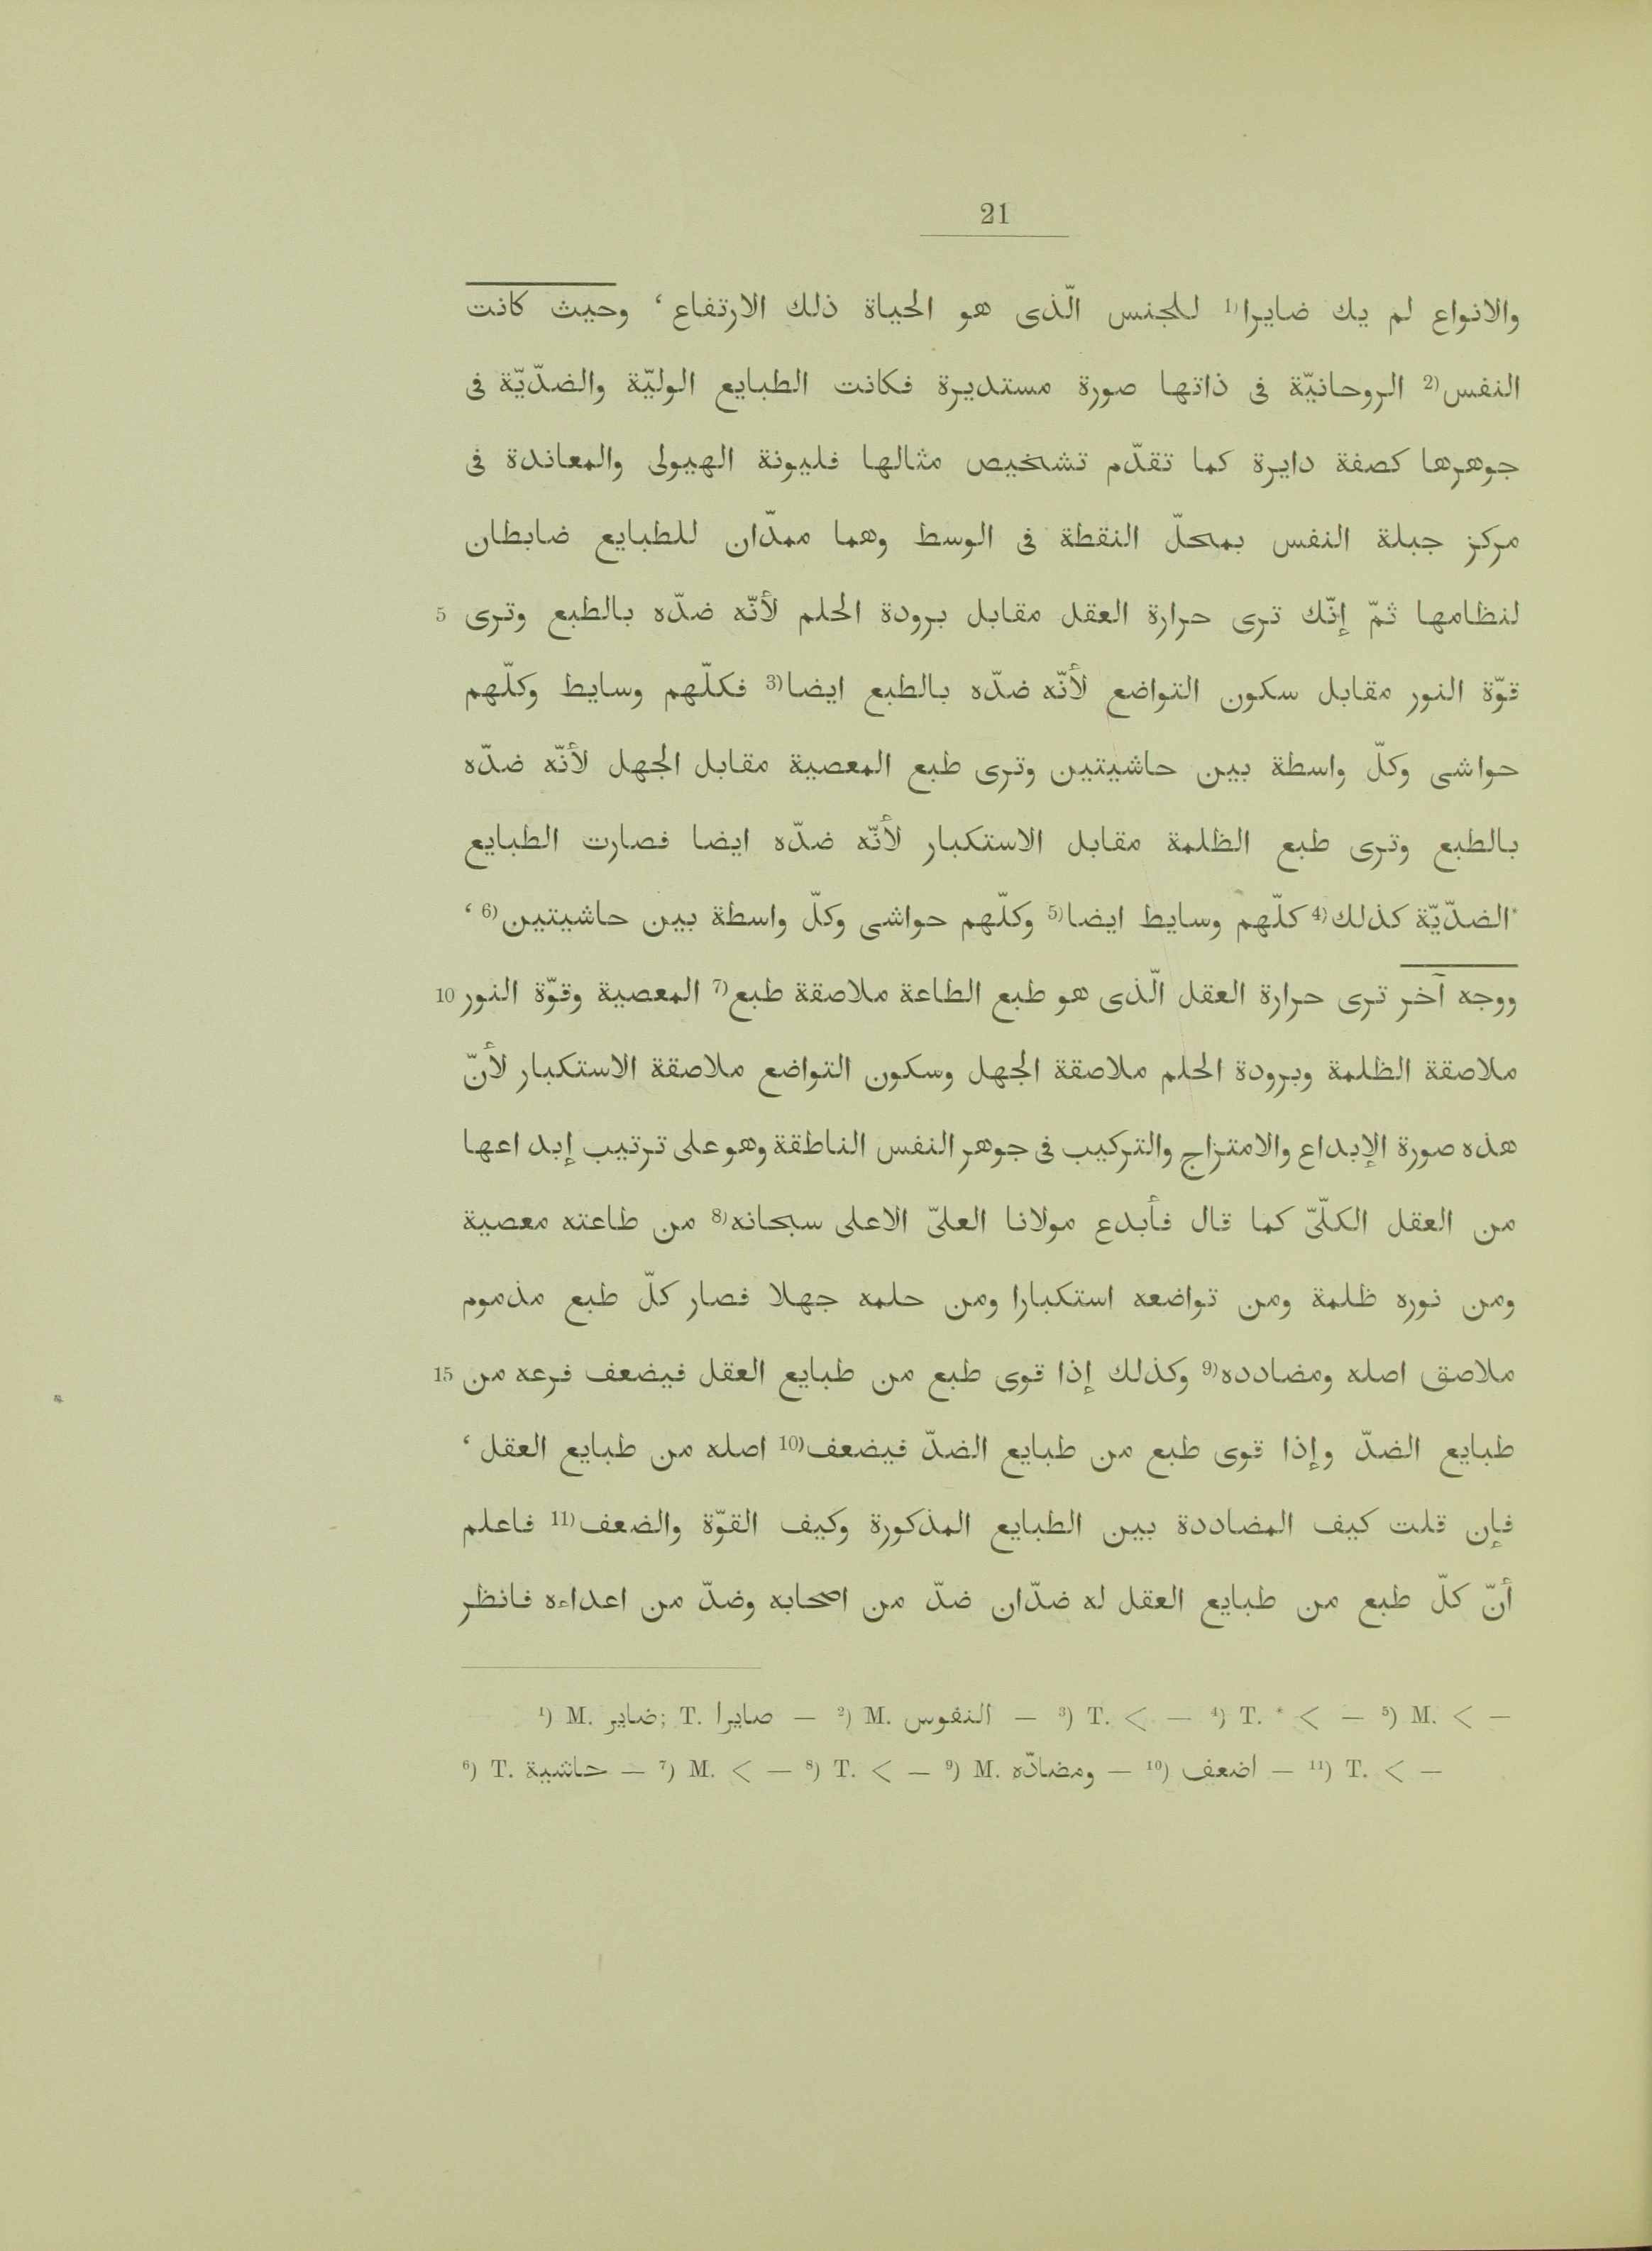 21
والانواع لم يك ضايرا(1 للجنس الّذى هو الحياة ذلك الارتفاع، وحيث كانت
النفس(2 الروحانيّة فى ذاتها صورة مستديرة فكانت الطبايع الوليّة والضدّيّة فى
جوهرها كصفة دايرة كما تقدّم تشخيص مثالها فليونة الهيولى والمعاندة فى
مركز جبلة النفس بمحلّ النقطة فى الوسط وهما ممدّان للطبايع ضابطان
لنظامها ثمّ إنّك ترى حرارة العقل مقابل برودة الحلم لأنّه ضدّه بالطبع وترى 5
قوّة النور مقابل سكون التواضع لأنّه ضدّه بالطبع ايضا(3 فكلّهم وسايط وكلّهم
حواشى وكلّ واسطة بين حاشيتين وترى طبع المعصية مقابل الجهل لأنّه ضدّه
بالطبع وترى طبع الظلمة مقابل الاستكبار لأنّه ضدّه ايضا فصارت الطبايع
*الضدّيّة كذلك(4 كلّهم وسايط ايضا(5 وكلّهم حواشى وكلّ واسطة بين حاشيتين(6،
ووجه آخر ترى حرارة العقل الّذى هو طبع الطاعة ملاصقة طبع(7 المعصية وقوّة النور 10
ملاصقة الظلمة وبرودة الحلم ملاصقة الجهل وسكون التواضع ملاصقة الاستكبار لأنّ
هذه صورة الإبداع والامتزاج والتركيب فى جوهر النفس الناطقة وهو على ترتيب إبداعها
من العقل الكلّىّ كما قال فأبدع مولانا العلىّ الاعلى سبحانه(8 من طاعته معصية
ومن نوره ظلمة ومن تواضعه استكبارا ومن حلمه جهلا فصار كلّ طبع مذموم
ملاصق اصله ومضادده(9 وكذلك إذا قوى طبع من طبايع العقل فيضعف فرعه من 15
طبايع الضدّ وإذا قوى طبع من طبايع الضدّ فيضعف(10 اصله من طبايع العقل،
فإن قلت كيف المضاددة بين الطبايع المذكورة وكيف القوّة والضعف(11 فاعلم
أنّ كلّ طبع من طبايع العقل له ضدّان ضدّ من اصحابه وضدّ من اعداءه فانظر
¹) M. ضاير; T. صايرا — ²) M. النفوس — ³) T. < — ⁴) T. * < — ⁵) M. < —
⁶) T. حاشية — ⁷) M. < — ⁸) T. < — ⁹) M. ومضادّه — ¹⁰) اضعف — ¹¹) T. < —